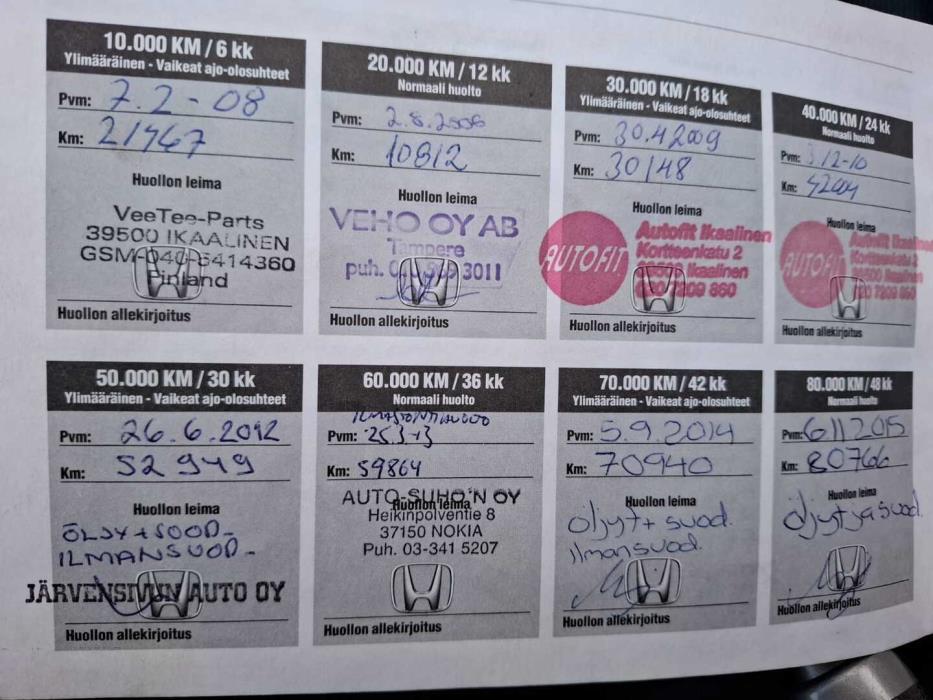 10.000 KM / 6 kk
Ylimääräinen - Vaikeat ajo-olosuhteet
Pvm: 7.2-08
Km: 21467
Huollon leima
VeeTee-Parts
39500 IKAALINEN
GSM-040-5414360
Finland
Huollon allekirjoitus
20.000 KM / 12 kk
Normaali huolto
Pvm: 2.8.2006
Km: 10812
Huollon leima
VEHO OY AB
Tampere
puh. 3011
Huollon allekirjoitus
30.000 KM / 18 kk
Ylimääräinen - Vaikeat ajo-olosuhteet
Pvm: 30.4.2009
Km: 30148
Huollon leima
AUTOFIT
Autofit Ikaalinen
Kortteenkatu 2
39500 Ikaalinen
020 7209 860
Huollon allekirjoitus
40.000 KM / 24 kk
Normaali huolto
Pvm: 12-10
Km: 42004
Huollon leima
AUTOFIT
Autofit Ikaalinen
Kortteenkatu 2
39500 Ikaalinen
020 7209 860
Huollon allekirjoitus
50.000 KM / 30 kk
Ylimääräinen - Vaikeat ajo-olosuhteet
Pvm: 26.6.2012
Km: 52949
Huollon leima
ÖLJY+SUOD-
ILMANSUOD-
JÄRVENSIVUN AUTO OY
Huollon allekirjoitus
60.000 KM / 36 kk
Normaali huolto
Pvm: 25.3-13
Km: 59864
Huollon leima
AUTO-SUHO'N OY
Heikinpolventie 8
37150 NOKIA
Puh. 03-341 5207
Huollon allekirjoitus
70.000 KM / 42 kk
Ylimääräinen - Vaikeat ajo-olosuhteet
Pvm: 5.9.2014
Km: 70940
Huollon leima
öljyt+ suod.
ilmansuod.
Huollon allekirjoitus
80.000 KM / 48 kk
Normaali huolto
Pvm: 6.11.2015
Km: 80766
Huollon leima
öljyt ja suod.
Huollon allekirjoitus